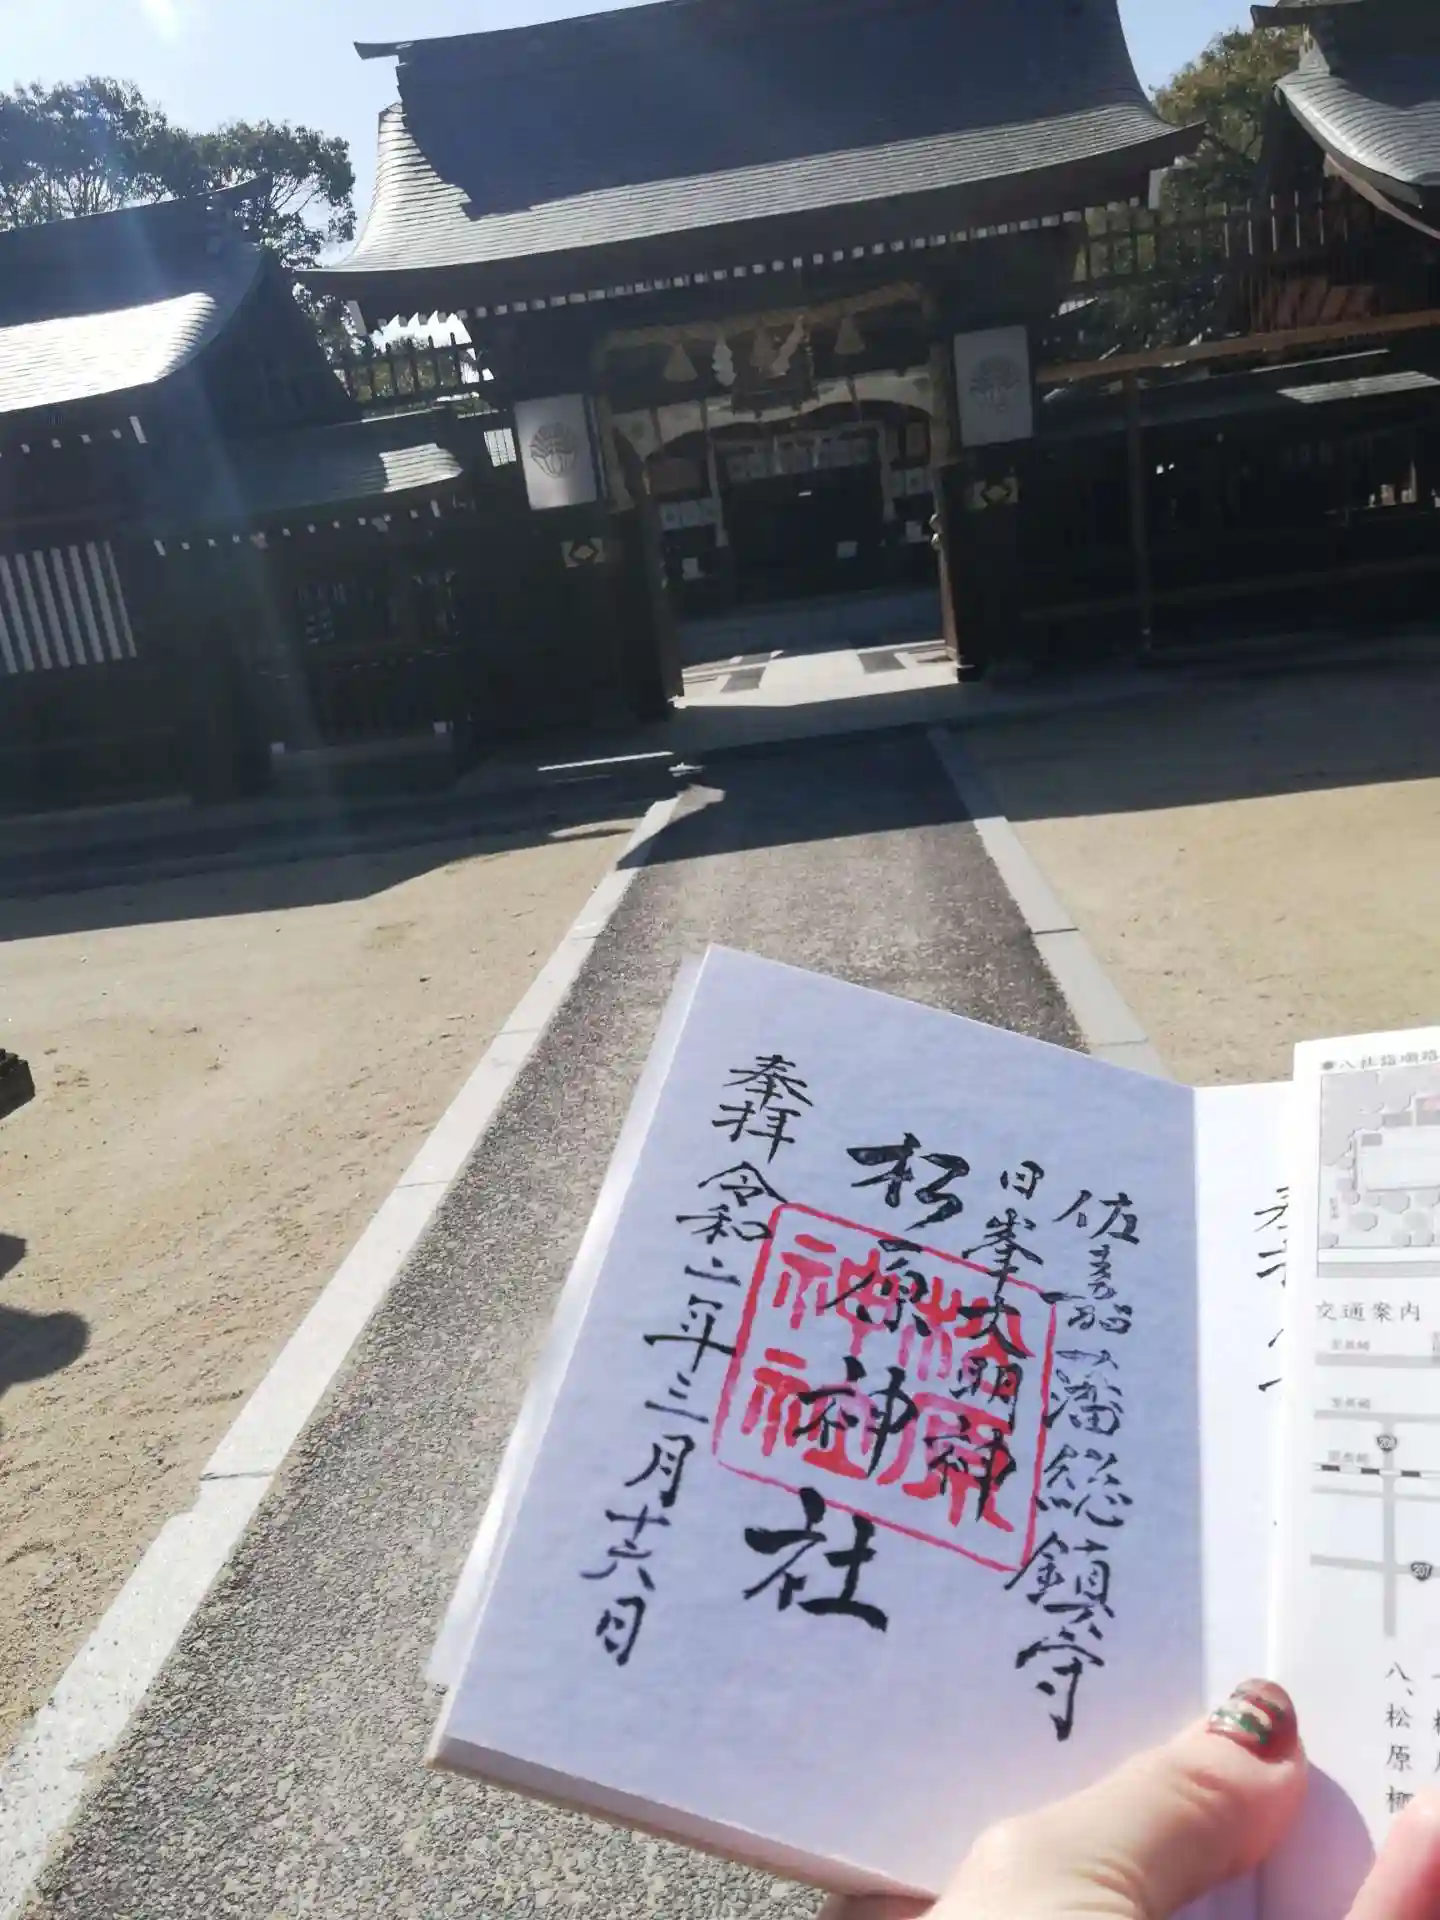 佐嘉藩総鎮守
日峯大明神
松原神社
奉拝 令和二年三月十六日
松原
神社
交通案内
八、松原